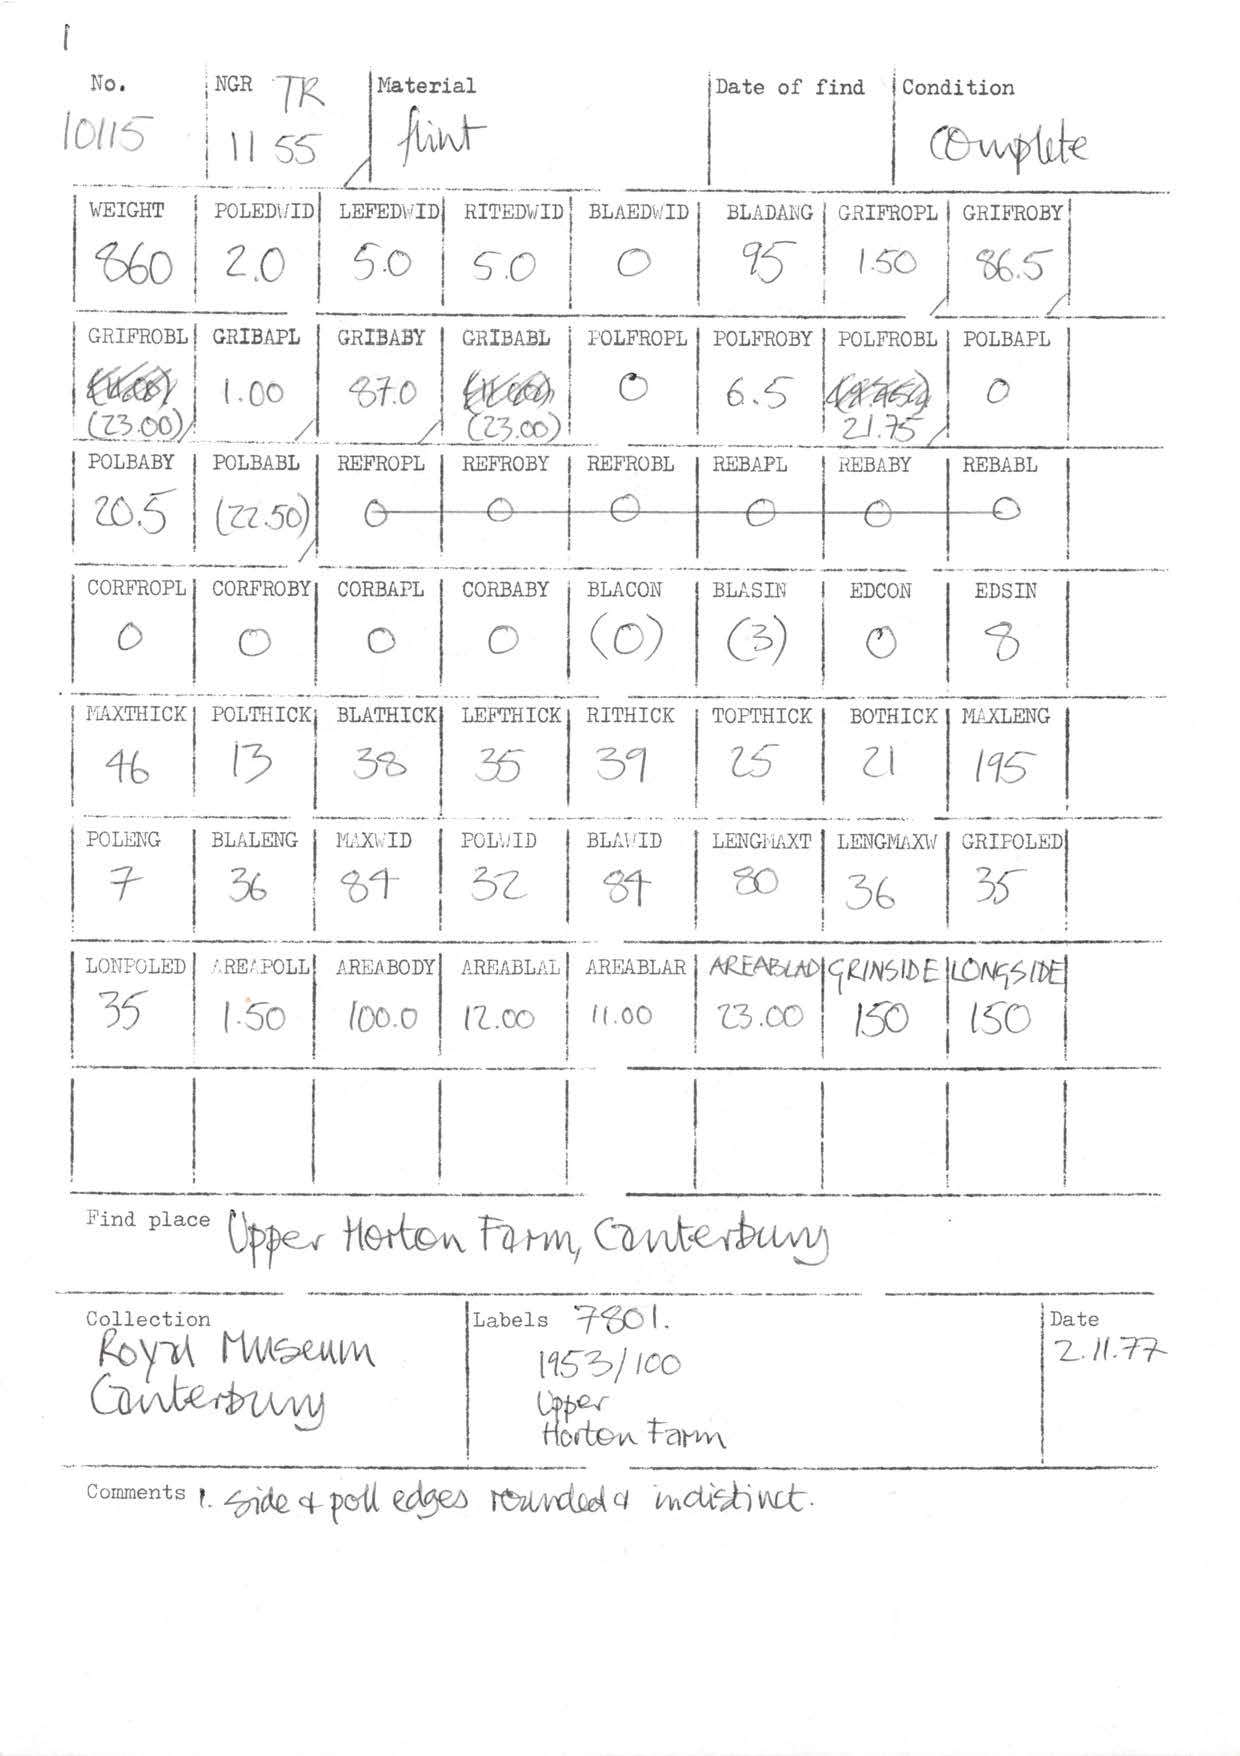 1
No. NGR TR Material Date of find Condition
10115 11 55 flint complete
WEIGHT POLEDWID LEFEDWID RITEDWID BLAEDWID BLADANG GRIFROPL GRIFROBY
860 2.0 5.0 5.0 0 95 1.50 86.5
GRIFROBL GRIBAPL GRIBABY GRIBABL POLFROPL POLFROBY POLFROBL POLBAPL
1.00 87.0 0 6.5 0
(23.00) (23.00) 21.75
POLBABY POLBABL REFROPL REFROBY REFROBL REBAPL REBABY REBABL
20.5 (22.50) 0 0 0 0 0 0
CORFROPL CORFROBY CORBAPL CORBABY BLACON BLASIN EDCON EDSIN
0 0 0 0 (0) (3) 0 8
MAXTHICK POLTHICK BLATHICK LEFTHICK RITHICK TOPTHICK BOTHICK MAXLENG
46 13 38 35 39 25 21 195
POLENG BLALENG MAXWID POLWID BLAWID LENGMAXT LENGMAXW GRIPOLED
7 36 84 32 84 80 36 35
LONPOLED AREAPOLL AREABODY AREABLAL AREABLAR AREABLAD GRINSIDE LONGSIDE
35 1.50 100.0 12.00 11.00 23.00 150 150
Find place Upper Horton Farm, Canterbury
Collection Labels 7801. Date
Royal Museum 1953/100 2.11.77
Canterbury Upper
Horton Farm
Comments 1. side & poll edges rounded & indistinct.